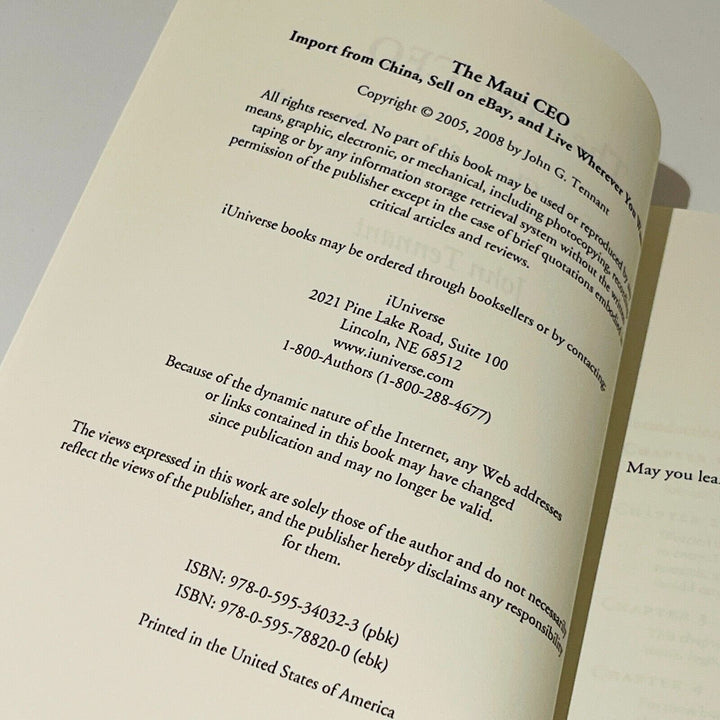 The Maui CEO
Import from China, Sell on eBay, and Live Wherever You
Copyright © 2005, 2008 by John G. Tennant
All rights reserved. No part of this book may be used or reproduced by
means, graphic, electronic, or mechanical, including photocopying,
taping or by any information storage retrieval system without the
permission of the publisher except in the case of brief quotations embodied
critical articles and reviews.
iUniverse books may be ordered through booksellers or by contacting:
iUniverse
2021 Pine Lake Road, Suite 100
Lincoln, NE 68512
www.iuniverse.com
1-800-Authors (1-800-288-4677)
Because of the dynamic nature of the Internet, any Web addresses
or links contained in this book may have changed
since publication and may no longer be valid.
The views expressed in this work are solely those of the author and do not necessarily
reflect the views of the publisher, and the publisher hereby disclaims any responsibility
for them.
ISBN: 978-0-595-34032-3 (pbk)
ISBN: 978-0-595-78820-0 (ebk)
Printed in the United States of America
May you